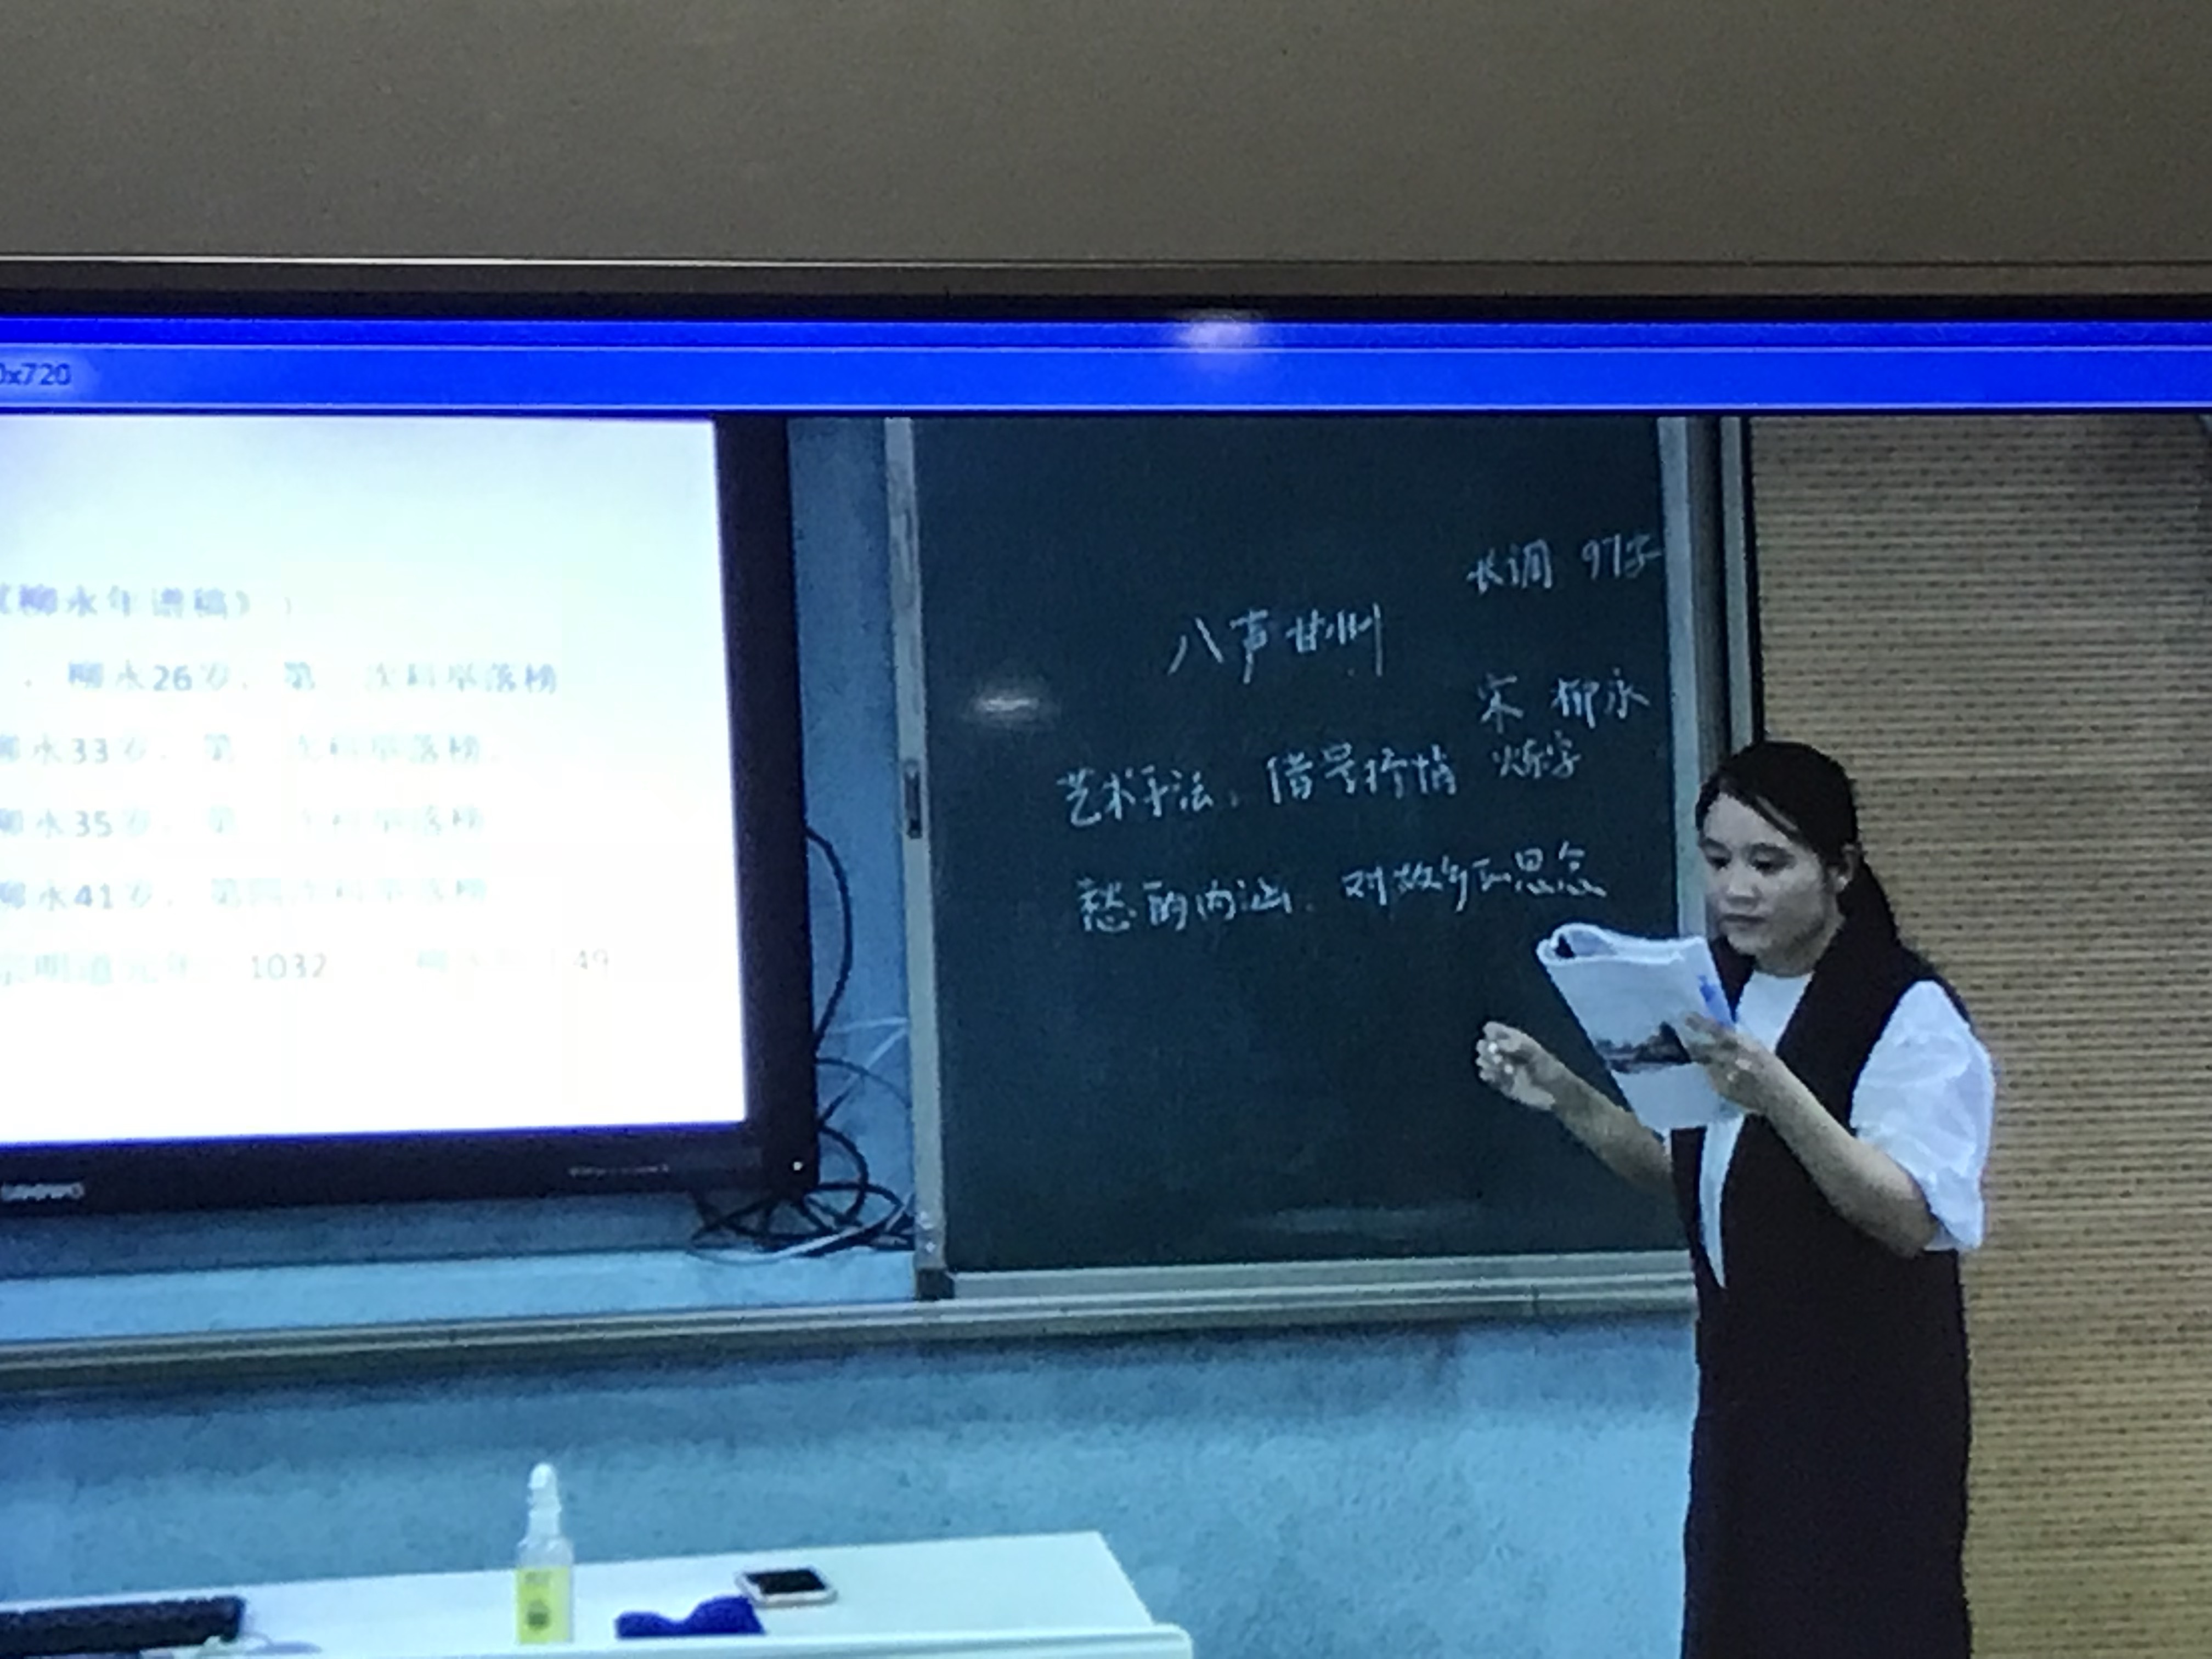 0x720
《柳永年谱稿》:
柳永26岁,第 次科举落榜
柳永33岁,第 次科举落榜,
柳永35岁,第 次科举落榜
柳永41岁,第四次科举落榜
宗明道元年 1032 49
长调 97字
八声甘州
宋 柳永
艺术手法:借景抒情 炼字
愁的内涵:对故乡的思念